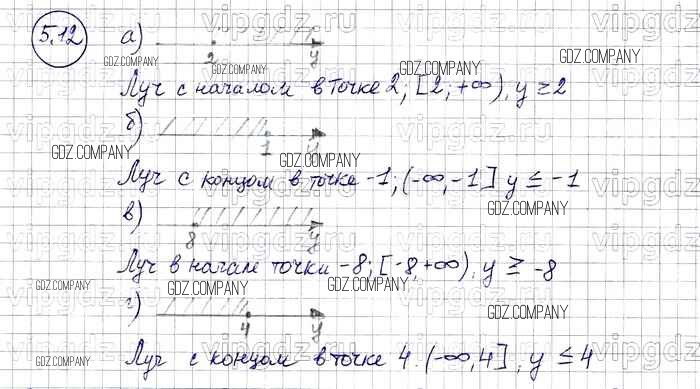 5.12 а)
2 y
Луч с началом в точке 2; [2; +∞), y ≥ 2
б)
1 y
Луч с концом в точке -1; (-∞, -1] y ≤ -1
в)
8 y
Луч в начале точки -8; [-8, +∞), y ≥ -8
г)
4 y
Луч с концом в точке 4. (-∞, 4], y ≤ 4
GDZ.COMPANY
GDZ.COMPANY
GDZ.COMPANY
GDZ.COMPANY
GDZ.COMPANY
GDZ.COMPANY
GDZ.COMPANY
GDZ.COMPANY
GDZ.COMPANY
GDZ.COMPANY
GDZ.COMPANY
GDZ.COMPANY
GDZ.COMPANY
GDZ.COMPANY
vipgdz.ru